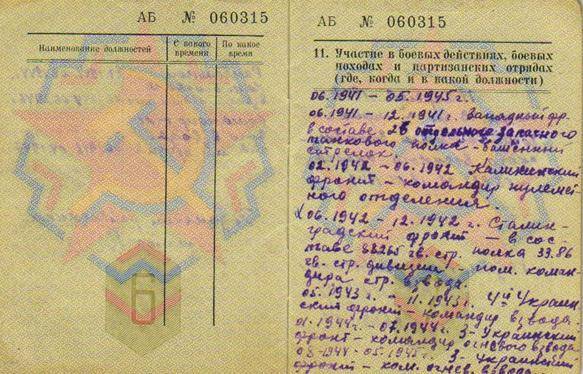 АБ № 060315
Наименование должностей
С какого времени
По какое время
6
АБ № 060315
11. Участие в боевых действиях, боевых
походах и партизанских отрядах
(где, когда и в какой должности)
06.1941 – 05.1945 г.
06.1941 – 12.1941 г. Западный фр.
в составе 26 отдельного запасного
танкового полка –
стрелок.
02.1942 – 06.1942 Калининский
фронт – командир пулемет-
ного отделения.
06.1942 – 12.1942 г. Сталин-
градский фронт – в сос-
таве 88265 гв. стр. полка 33.86
гв. стр. дивизии – пом. коман-
дира стр. взвода.
05.1943 г. – 11.1943 г. 4й Украин-
ский фронт – командир взвода.
01.1944 г. – 07.1944 г. 3- Украинский
фронт – командир огневого взвода
08.1944 – 05.1945 г. 3- Украинский
фронт – ком. огнев. взвода.